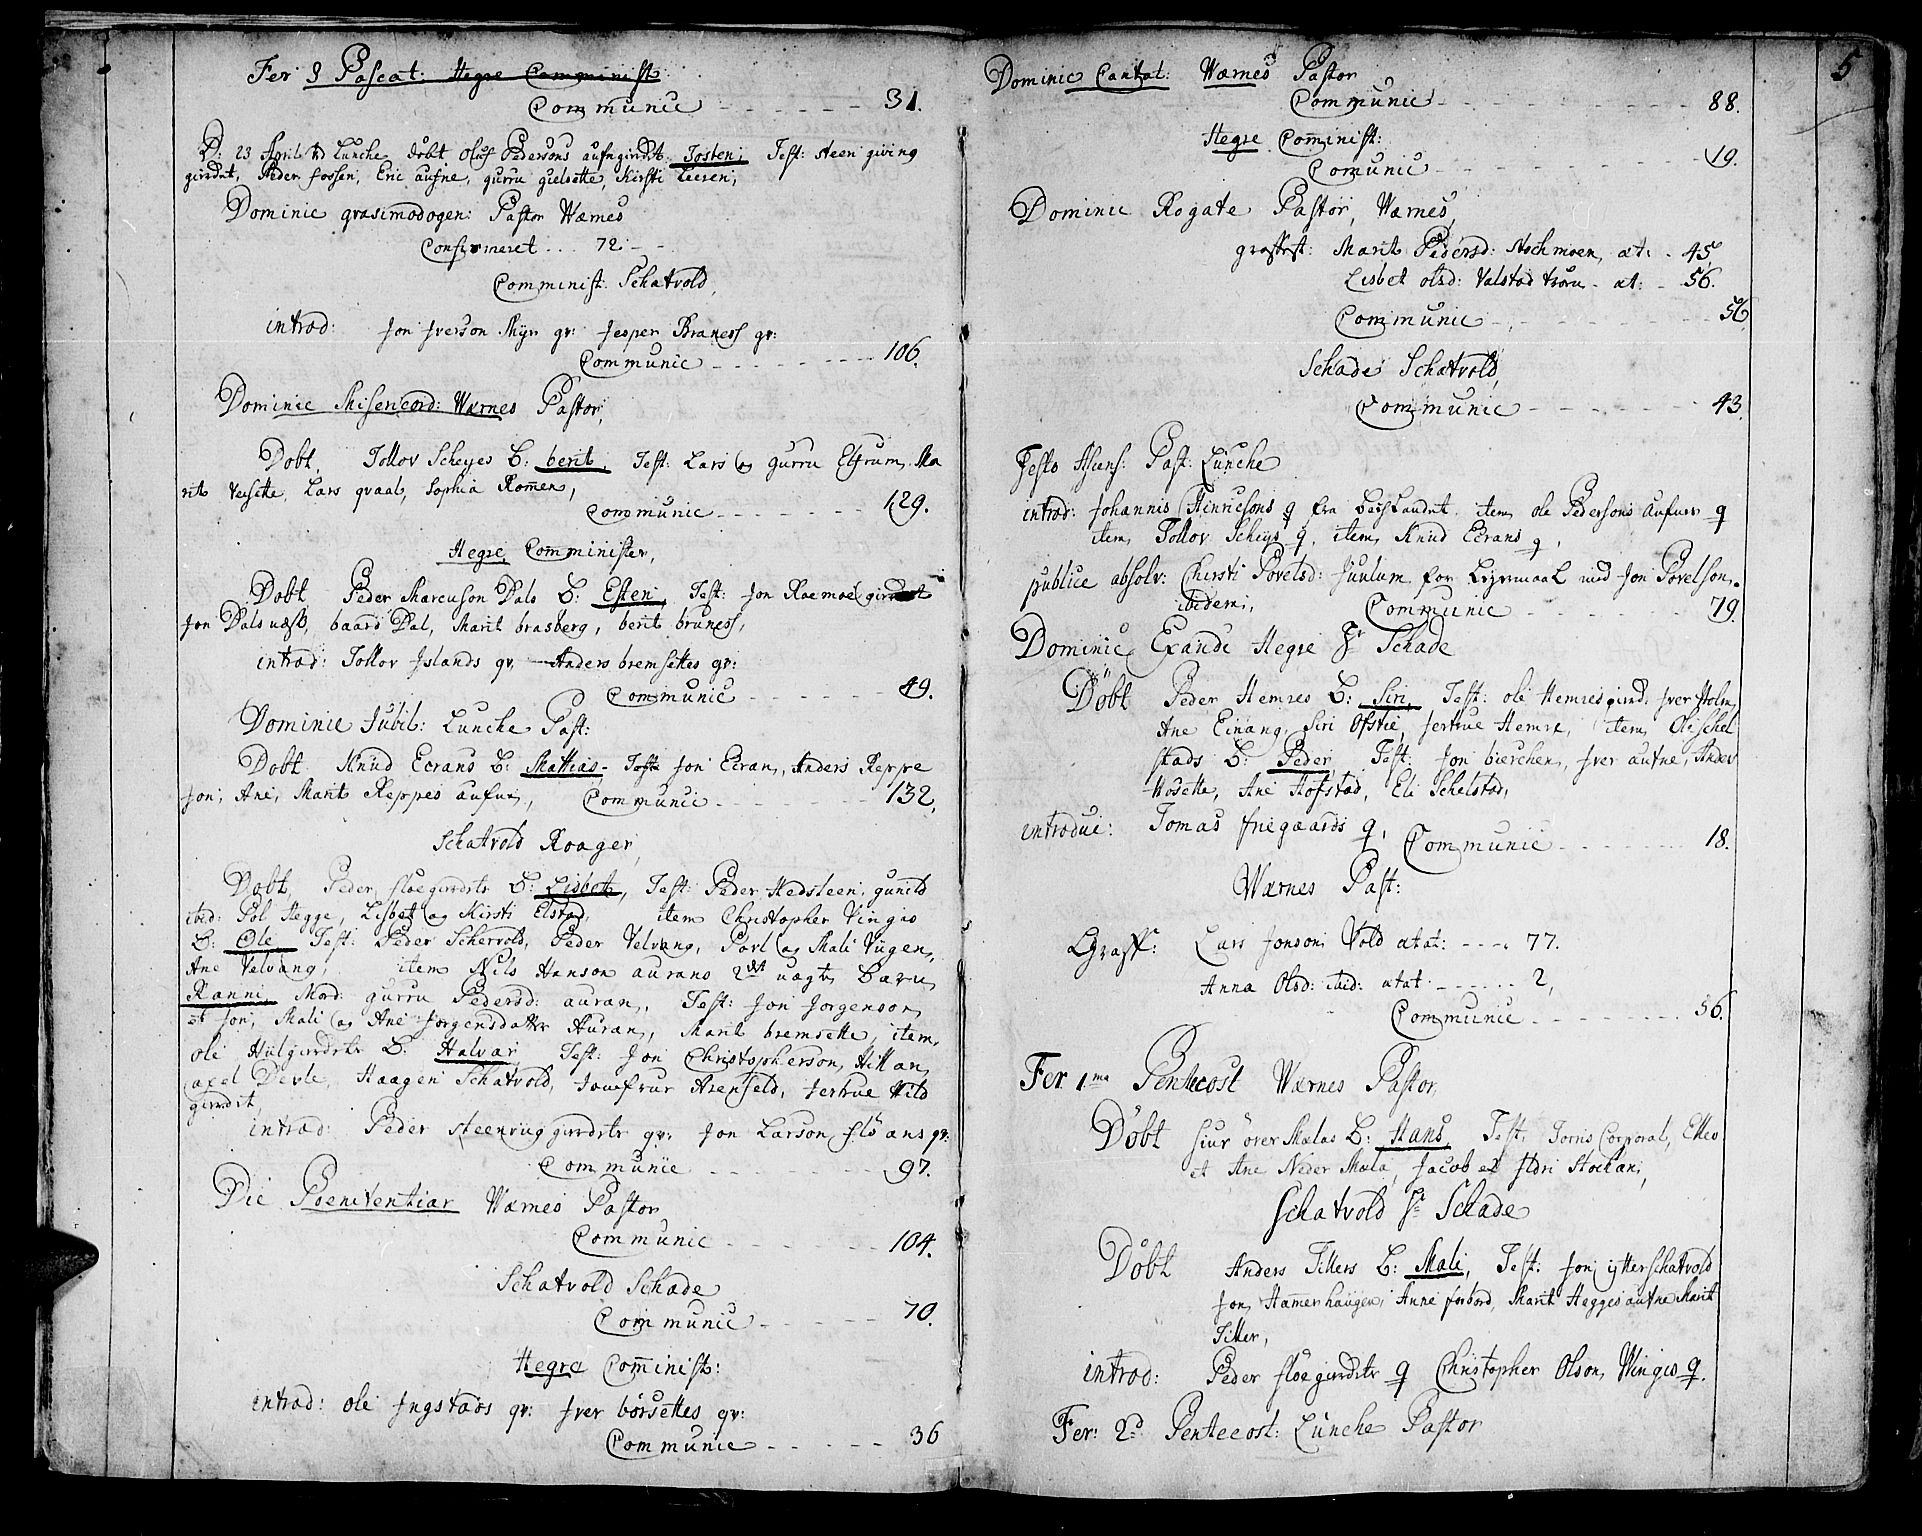 Fer 3 Pascat: Hegre Comminist
Communic - - - - - - 31.
D: 23 April bd Lunche døbt Oluf Pedersøns aufngirdet Josten, Test: Steen giving
girdet, Peder fossen, Eric aufne, gurru gielsette, Kirsti Leeren,
Dominic qvasimodogen: Pastor Wærnes
Confirmeret - - - 72 - -
Comminist: Schatvold,
introd: Jon Iverson Myr qv: Jesper Braness qv:
Communic - - - - - - 106.
Dominic Misericord: Wærnes Pastor,
Døbt, Tollov Scheyes B: berit, Test: Lars og gurru Elfrum, Ma
rit Versette, Lars qvaal, Sophia Romen,
Communic - - - - - - 129.
Hegre Comminister,
Døbt Peder Marcuson Dals B: Esten, Test: Jon Roemoe
Jon Dals , baard Dal, Marit brasberg, berit bruness,
introd: Tollov Islands qv Anders bremsettes qv:
Communic - - - - - - 49.
Dominic Jubil: Lunche Past:
Døbt Knud Ecrans B: Mattias, Test Jon Ecran, Anders Reppe
Jon, Ane, Marit Reppes aufne, Communic - - - - - - 132,
Schatvold Roager,
Døbt, Peder fløegirdets B: Lisbet, Test: Peder Hedsteen, gunild
ibid: Pol Hegge, Lisbet og Kirsti Elstad, item Christopher Vinges
B: Ole Test: Peder Schervold, Peder Velvang, Povl og Mali Vingen,
Ane Velvang, item Nils Hanson aurans uægte Barn
Ranni, Mod: gurru Pedersd: auran, Test: Jon Jorgenson
et Jon, Mali og Ane Jorgensdatter Auran, Marit bremsette, item,
ole Hulgirdets B: Halvar, Test: Jon Christopherson Hillan,
axel Devle, Haagen Schatvold, Jomfrue Arenfeld, Jertrue Hild
girdet,
introd: Peder steenvig girdets qv: Jon Larson fløans qv:
Communic - - - - - - 97.
Die Poenitentiar Wærnes Pastor
Communic - - - - - - 104.
Schatvold Schade
Communic - - - - - 70.
Hegre Comminist:
introd: ole Ingstads qv: Iver børsettes qv:
Communic - - - - - 36
5
Dominic Cantat: Wærnes Pastor
Communic - - - - - - 88.
Hegre Comminist:
Communic - - - - - - 19.
Dominic Rogate Pastor, Wærnes,
graffest: Marit Pedersd: Mochmoen, æt: - 45,
Lisbet olsd: Valstad trøen - æt: - 56.
Communic - - - - - - 56
Schade Schatvold,
Communic - - - - - - 43.
Festo Ascens: Past: Lunche
introd: Johannis Hinricsons q fra Leislandet item ole Pedersons Aufne q
item, Tollov Scheys q, item Knud Ecrans q,
publice absolv: Chirsti Povelsd: Juulum for Leyermaal med Jon Povelson
ibidem, Communic - - - - - 79.
Dominic Exaudi Hegre Hr Schade
Døbt Peder Hemres B: Siri, Test: ole Hemresgird: Iver Holm,
Ane Einang, Siri Ofstie, Jertrue Hemre, item, Ole Schel
stads B: Peder Test: Jon bierchen, Iver aufne, Ander
Mosette, Ane Hofstad, Eli Schelstad,
introduc: Tomas friegaards q, Communic - - - - - - 18.
Wærnes Past:
Graff: Lars Jonson Vold ætat: - - - - 77.
Anna Olsd: ibid: ætat - - - - - - 2,
Communic - - - - - - 56.
Fer 1ma Pentecost Wærnes Pastor,
Døbt Siur over Mælas B: Hans, Test: Jorris Corporal, Elles
et Ane Neder Mæla, Jacob et Ildri Stockan,
Schatvold Hr Schade
Døbt Anders Tillers B: Mali, Test: Jon ytterschatvold
Jon Hamerhaugen, Anne forbord, Marit Hegges aufne Marit
Tiller,
introd: Peder fløegirdets q Christopher Olson Winges q.
Fer: 2d Pentecost: Lunche Pastor